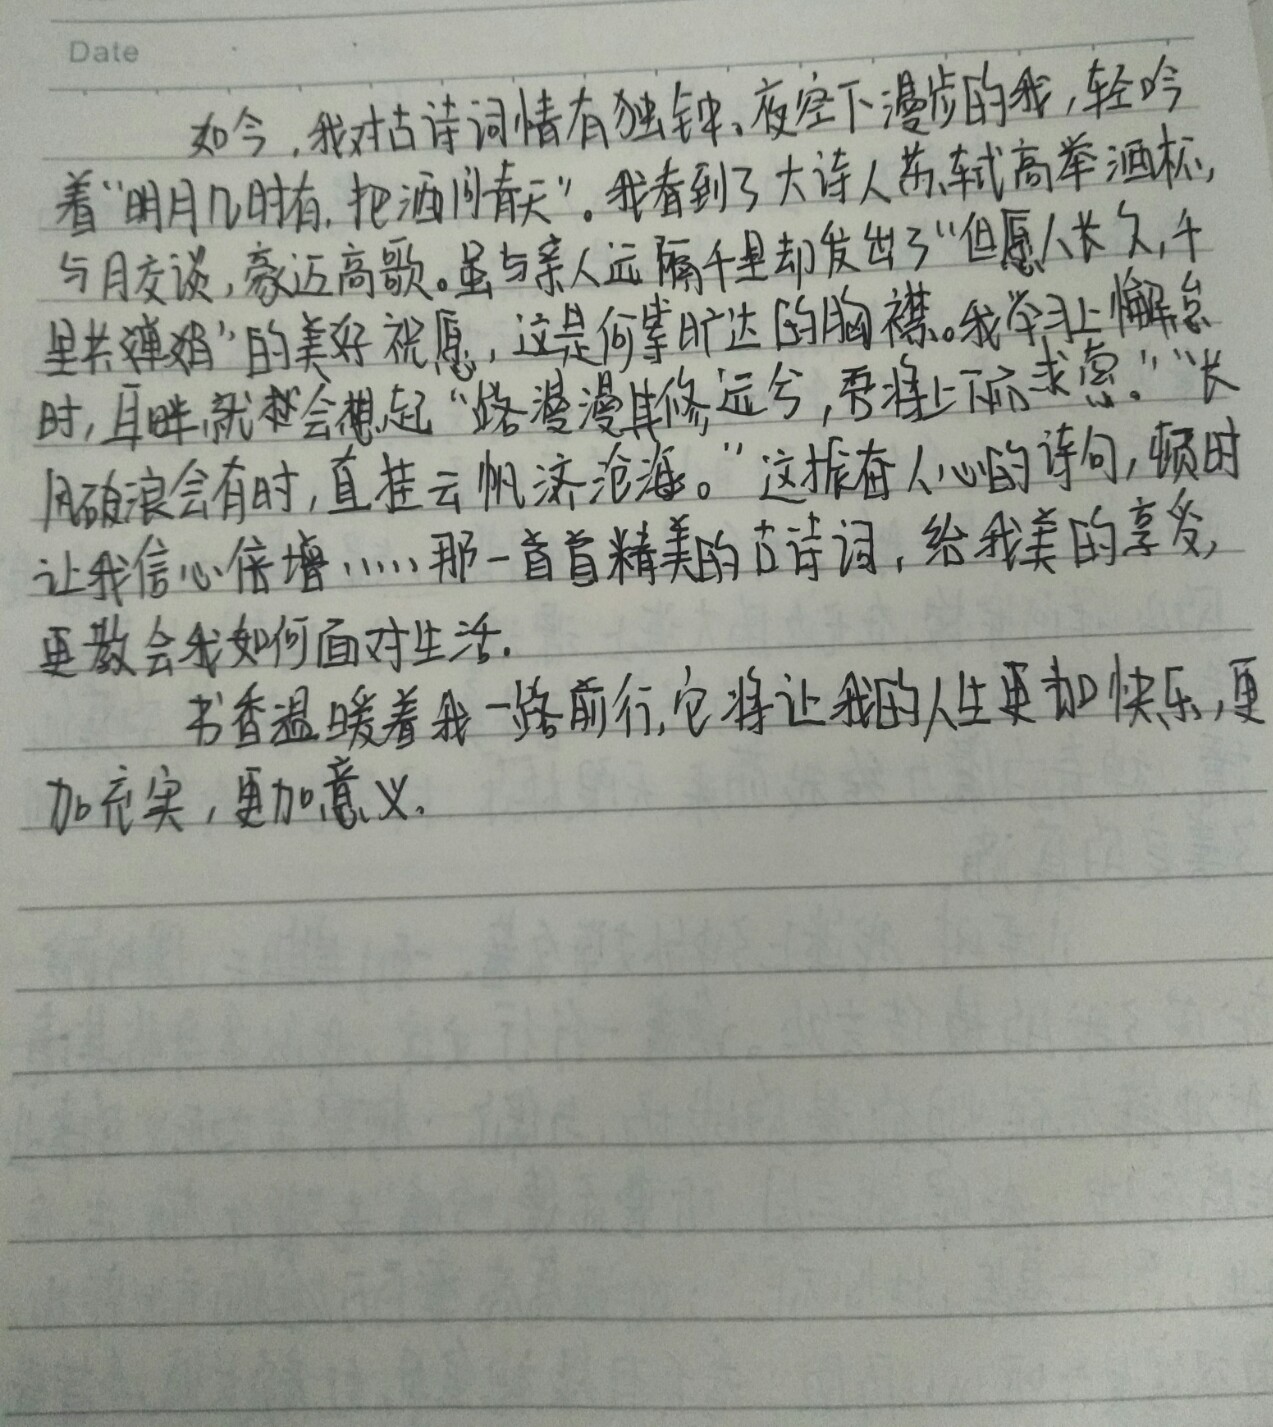 Date
如今,我对古诗词情有独钟。夜空下漫步的我,轻吟
着“明月几时有,把酒问青天”。我看到了大诗人苏轼高举酒杯,
与月交谈,豪迈高歌。虽与亲人远隔千里却发出了“但愿人长久,千
里共婵娟”的美好祝愿,这是何等旷达的胸襟。我学习上懈怠
时,耳畔就会想起“路漫漫其修远兮,吾将上下而求索。”“长
风破浪会有时,直挂云帆济沧海。”这振奋人心的诗句,顿时
让我信心倍增……那一首首精美的古诗词,给我美的享受,
更教会我如何面对生活.
书香温暖着我一路前行,它将让我的人生更加快乐,更
加充实,更加意义.